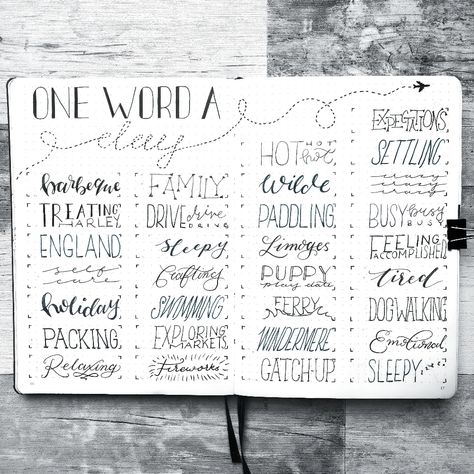 ONE WORD A
day
barbeque
TREATING
HARLEY
ENGLAND
self
care
holiday
PACKING
Relaxing
FAMILY
DRIVE drive
DRIVE
sleepy
Crafting
SWIMMING
EXPLORING
MARKETS
Fireworks
HOT HOT
hot
Wilde
PADDLING
Limoges
PUPPY
play date
FERRY
WINDERMERE
CATCH-UP
EXPECTATIONS
SETTLING
BUSY busy
BUSY
FEELING
ACCOMPLISHED
tired
DOG WALKING
Emotional
SLEEPY